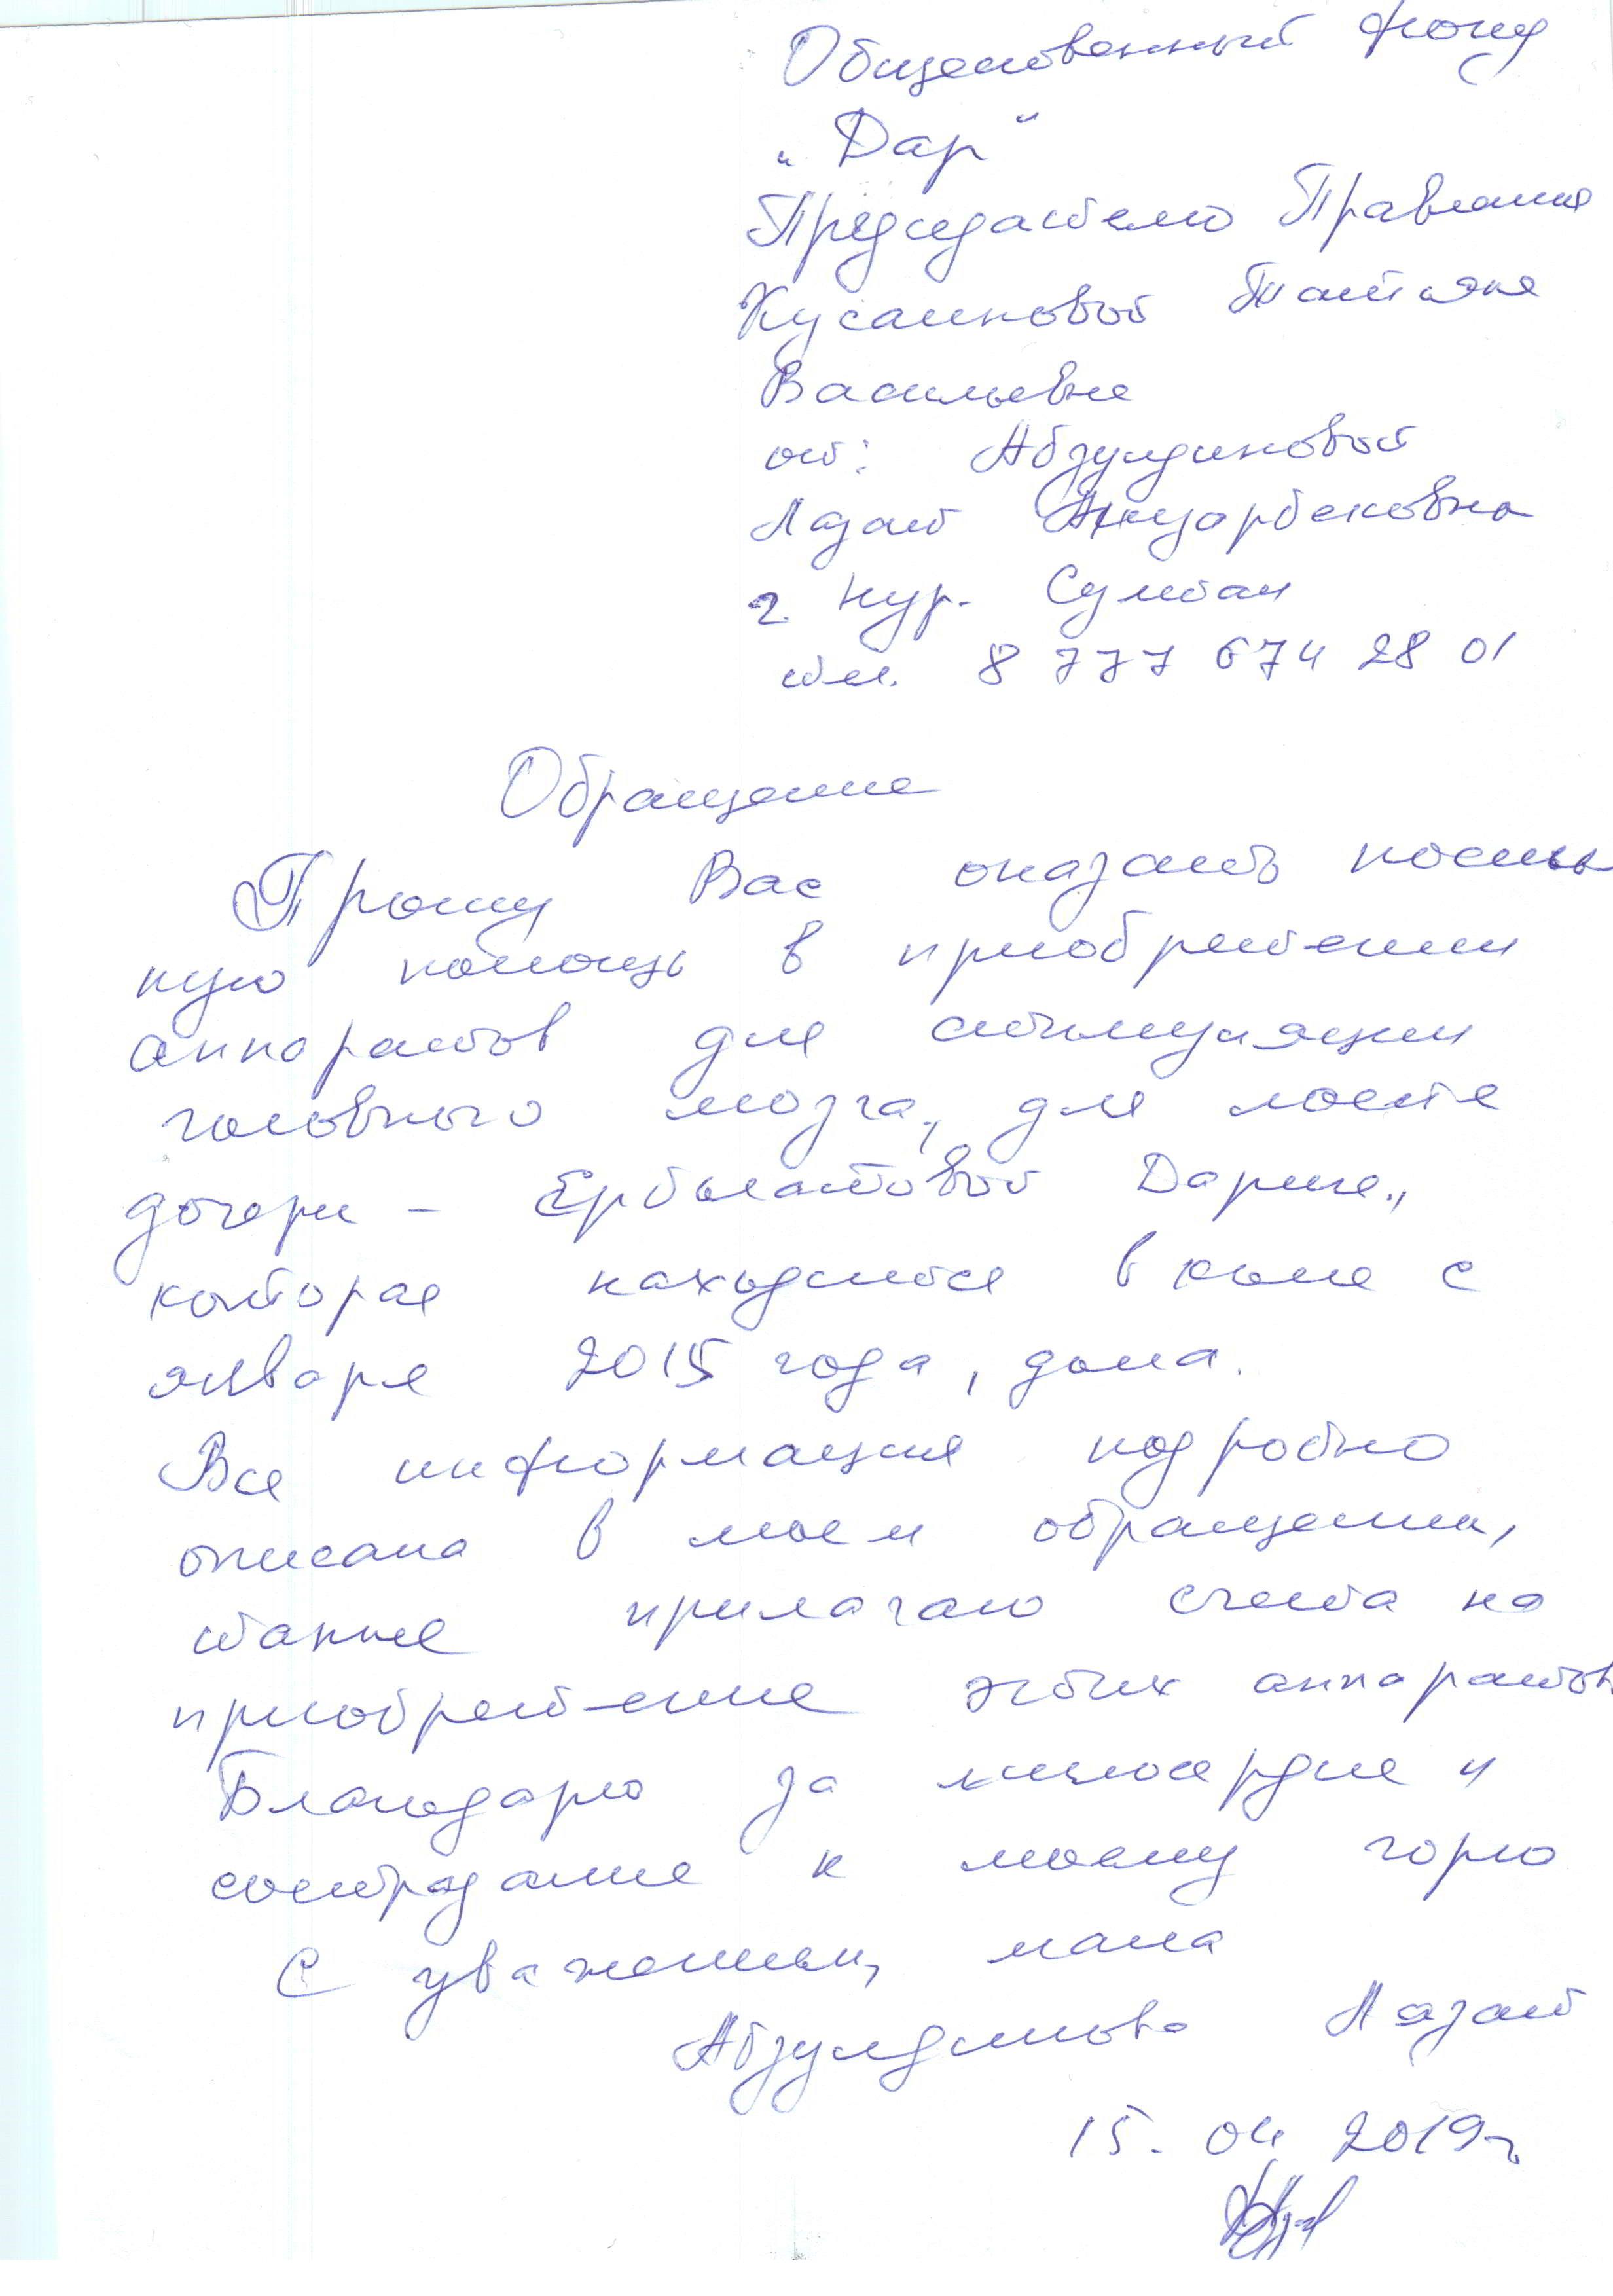 Общественный фонд
"Дар"
Председателю Правления
Кусаиновой Татьяне
Васильевне
от: Абзулдиновой
Лязат Ануарбековна
г. Нур-Султан
тел. 8 777 674 28 01
Обращение
Прошу Вас оказать посиль
ную помощь в приобретении
аппаратов для стимуляции
головного мозга, для моей
дочери - Ерболатовой Дарии,
которая находится в коме с
января 2015 года, дома.
Вся информация подробно
описана в моем обращении,
также прилагаю счета на
приобретение этих аппаратов
Благодарю за милосердие и
сострадание к моему горю
С уважением, мама
Абзулдинова Лязат
15.04 2019г.